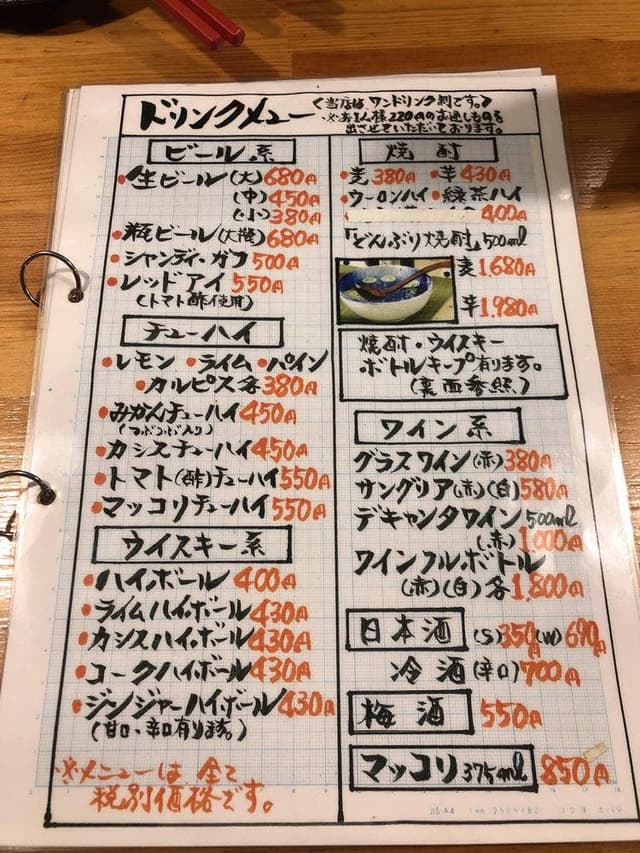 ドリンクメニュー
〈当店は、ワンドリンク制です。〉
※お1人様220円のお通しものを
出させていただいております。
ビール系
生ビール(大)680円
(中)450円
(小)380円
瓶ビール(大瓶)680円
シャンディ・ガフ500円
レッドアイ550円
(トマト酢使用)
チューハイ
レモン ライム パイン
カルピス各380円
みかんチューハイ450円
(つぶつぶ入り)
カシスチューハイ450円
トマト(酢)チューハイ550円
マッコリチューハイ550円
ウイスキー系
ハイボール400円
ライムハイボール430円
カシスハイボール430円
コークハイボール430円
ジンジャーハイボール430円
(甘口、辛口有ります。)
※メニューは、全て
税別価格です。
焼酎
麦380円 芋430円
ウーロンハイ 緑茶ハイ
400円
「どんぶり焼酎」500ml
麦1,680円
芋1,980円
焼酎・ウイスキー
ボトルキープ有ります。
(裏面参照)
ワイン系
グラスワイン(赤)380円
サングリア(赤)(白)580円
デキャンタワイン500ml
(赤)1,000円
ワインフルボトル
(赤)(白)各1,800円
日本酒(S)350円(W)690円
冷酒(辛口)700円
梅酒 550円
マッコリ375ml 850円
JIS A4